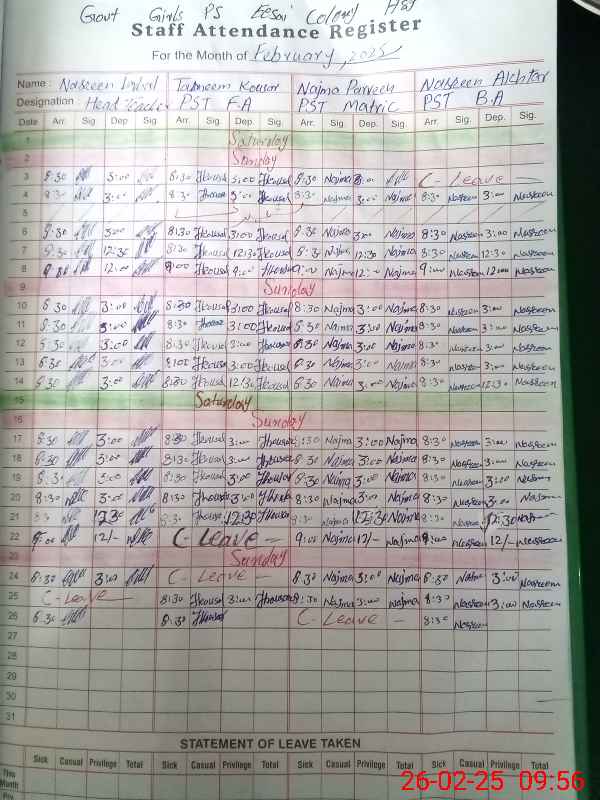 Govt Girls PS Eesai Colony
Staff Attendance Register
For the Month of February, 2025
Name : Nasreen Tasneem Kousar Najma Parveen Nasreen Akhtar
Designation : Head Teacher PST F.A PST Matric PST B.A
Date Arr. Sig. Dep Sig. Arr. Sig. Dep. Sig. Arr. Sig. Dep. Sig. Arr. Sig. Dep. Sig.
1 Saturday
2 Sunday
3 8:30 3:00 8:30 Tkousar 3:00 Tkousar 8:30 Najma 3:00 C-Leave
4 8:30 3:00 8:30 Tkousar 3:00 Tkousar 8:30 Najma 3:00 Najma 8:30 Nasreen 3:00 Nasreen
5
6 8:30 3:00 8:30 Tkousar 3:00 Tkousar 8:30 Najma 3:00 Najma 8:30 Nasreen 3:00 Nasreen
7 8:30 12:30 8:30 Tkousar 12:30 Tkousar 8:30 Najma 12:30 Najma 8:30 Nasreen 12:30 Nasreen
8 12:00 9:00 Tkousar Tkousar 9:00 Najma 12:00 Najma 9:00 Nasreen 12:00 Nasreen
9 Sunday
10 8:30 3:00 8:30 Tkousar 3:00 Tkousar 8:30 Najma 3:00 Najma 8:30 Nasreen 3:00 Nasreen
11 8:30 3:00 8:30 Tkousar 3:00 Tkousar 8:30 Najma 3:00 Najma 8:30 Nasreen 3:00 Nasreen
12 8:30 3:00 8:30 Tkousar 3:00 Tkousar 8:30 Najma 3:00 Najma 8:30 Nasreen 3:00 Nasreen
13 8:30 3:00 Tkousar 3:00 Tkousar 8:30 Najma 3:00 Najma 8:30 Nasreen 3:00 Nasreen
14 8:30 3:00 8:30 Tkousar 12:30 Tkousar 8:30 Najma 3:00 Najma 8:30 Nasreen 12:30 Nasreen
15 Saturday
16 Sunday
17 8:30 3:00 8:30 Tkousar 3:00 Tkousar 8:30 Najma 3:00 Najma 8:30 Nasreen 3:00 Nasreen
18 8:30 3:00 8:30 Tkousar 3:00 Tkousar 8:30 Najma 3:00 Najma 8:30 Nasreen 3:00 Nasreen
19 8:30 3:00 8:30 Tkousar 3:00 Tkousar 8:30 Najma 3:00 Najma 8:30 Nasreen 3:00 Nasreen
20 8:30 3:00 8:30 Tkousar 3:00 Tkousar 8:30 Najma 3:00 Najma 8:30 Nasreen 3:00 Nasreen
21 8:30 12:30 8:30 Tkousar 12:30 Tkousar 8:30 Najma 12:30 Najma 8:30 Nasreen 12:30
22 9:00 12/- C-Leave 9:00 Najma 12/- Najma 9:00 Nasreen 12/- Nasreen
23 Sunday
24 8:30 3:00 C-Leave 8:30 Najma 3:00 Najma 8:30 3:00 Nasreen
25 C-Leave 8:30 Tkousar 3:00 Tkousar 8:30 Najma 3:00 Najma 8:30 Nasreen 3:00 Nasreen
26 8:30 8:30 Tkousar C-Leave 8:30 Nasreen
27
28
29
30
31
STATEMENT OF LEAVE TAKEN
Sick Casual Privilege Total Sick Casual Privilege Total Sick Casual Privilege Total Sick Casual Privilege Total
This Month
26-02-25 09:56